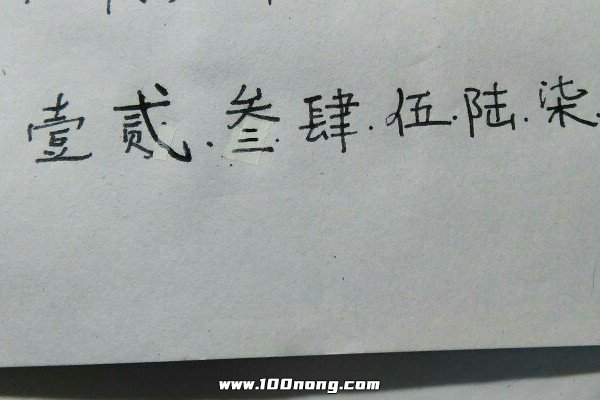 壹贰.叁.肆.伍.陆.柒.
www.100nong.com